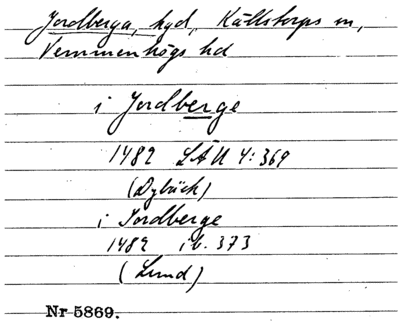 Jordberga, hgd, Källstorps sn,
Vemmenhögs hd
i Jordberge
1482 LÄU 4:369
(Dybäck)
i Jordberge
1482 ib. 373
(Lund)
Nr 5869.